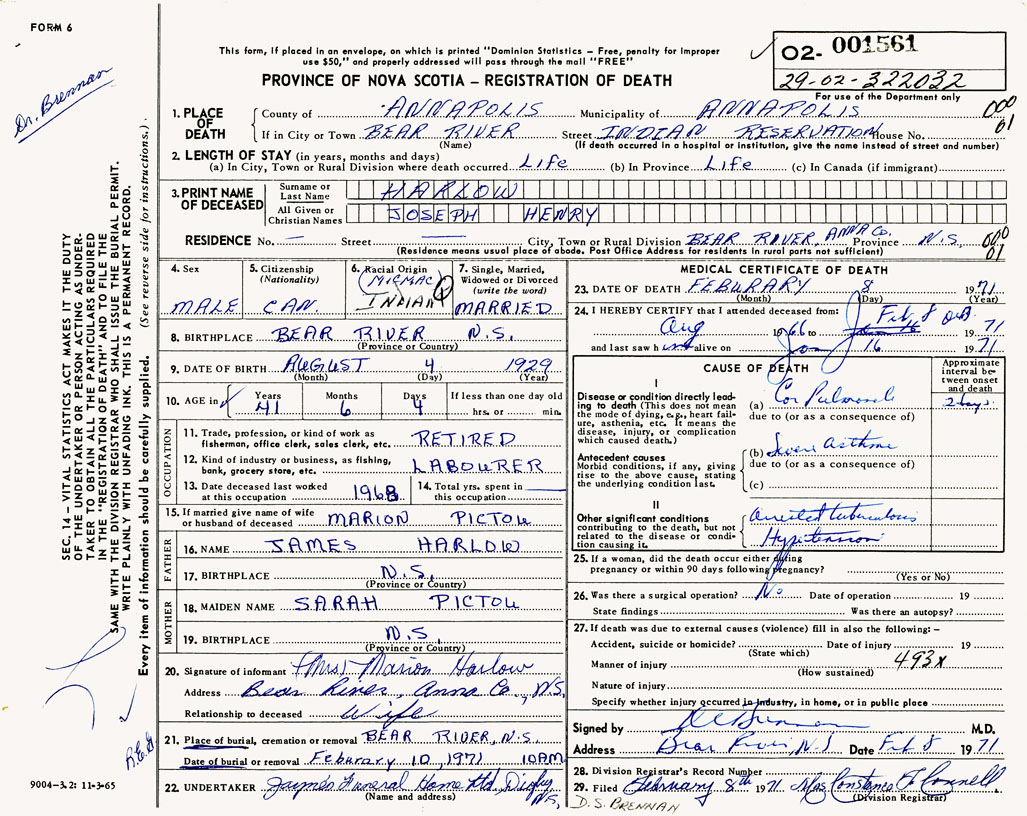 FORM 6
Dr. Brennan
This form, if placed in an envelope, on which is printed "Dominion Statistics – Free, penalty for improper
use $50," and properly addressed will pass through the mail "FREE"
PROVINCE OF NOVA SCOTIA – REGISTRATION OF DEATH
02- 001561
29-02-322032
For use of the Department only
1. PLACE OF DEATH
County of ANNAPOLIS Municipality of ANNAPOLIS
If in City or Town BEAR RIVER Street INDIAN RESERVATION House No.
(Name) (If death occurred in a hospital or institution, give the name instead of street and number)
000
61
2. LENGTH OF STAY (in years, months and days)
(a) In City, Town or Rural Division where death occurred Life (b) In Province Life (c) In Canada (if immigrant)
3. PRINT NAME OF DECEASED
Surname or Last Name HARLOW
All Given or Christian Names JOSEPH HENRY
RESIDENCE No. — Street — City, Town or Rural Division BEAR RIVER, ANNA Co. Province N.S.
(Residence means usual place of abode. Post Office Address for residents in rural parts not sufficient)
000
61
4. Sex
MALE
5. Citizenship
(Nationality)
CAN.
6. Racial Origin
(MICMAC)
INDIAN
7. Single, Married,
Widowed or Divorced
(write the word)
MARRIED
8. BIRTHPLACE BEAR RIVER N.S.
(Province or Country)
9. DATE OF BIRTH AUGUST 4 1929
(Month) (Day) (Year)
10. AGE in Years Months Days If less than one day old
41 6 4 hrs. or min.
OCCUPATION
11. Trade, profession, or kind of work as
fisherman, office clerk, sales clerk, etc. RETIRED
12. Kind of industry or business, as fishing,
bank, grocery store, etc. LABOURER
13. Date deceased last worked
at this occupation 1968
14. Total yrs. spent in
this occupation
15. If married give name of wife
or husband of deceased MARION PICTOU
FATHER
16. NAME JAMES HARLOW
17. BIRTHPLACE N.S.
(Province or Country)
MOTHER
18. MAIDEN NAME SARAH PICTOU
19. BIRTHPLACE N.S.
(Province or Country)
20. Signature of informant (Mrs) Marion Harlow
Address Bear River, Anna Co, N.S.
Relationship to deceased Wife
21. Place of burial, cremation or removal BEAR RIVER, N.S.
Date of burial or removal Feburary 10, 1971 10AM
22. UNDERTAKER Jaynes Funeral Home Ltd, Digby N.S.
(Name and address)
MEDICAL CERTIFICATE OF DEATH
23. DATE OF DEATH FEBURARY 8 1971
(Month) (Day) (Year)
24. I HEREBY CERTIFY that I attended deceased from:
Aug 1966 to Feb 8 1971
and last saw h alive on Jan 16 1971
CAUSE OF DEATH
Approximate
interval be-
tween onset
and death
I
Disease or condition directly lead-
ing to death (This does not mean
the mode of dying, e.g., heart fail-
ure, asthenia, etc. It means the
disease, injury, or complication
which caused death.)
(a) Cor Pulmonale 2 days
due to (or as a consequence of)
Antecedent causes
Morbid conditions, if any, giving
rise to the above cause, stating
the underlying condition last.
(b) Severe Asthma
due to (or as a consequence of)
(c)
II
Other significant conditions
contributing to the death, but not
related to the disease or condi-
tion causing it.
arrested tuberculosis
Hypertension
25. If a woman, did the death occur either during
pregnancy or within 90 days following pregnancy?
(Yes or No)
26. Was there a surgical operation? No Date of operation 19
State findings Was there an autopsy?
27. If death was due to external causes (violence) fill in also the following: –
Accident, suicide or homicide? Date of injury 19
(State which)
Manner of injury 493x
(How sustained)
Nature of injury
Specify whether injury occurred in industry, in home, or in public place
Signed by D S Brennan M.D.
Address Bear River, N.S. Date Feb 8 1971
28. Division Registrar's Record Number
29. Filed February 8th 1971 Mrs Constance
(Division Registrar)
D.S. BRENNAN
SEC. 14 – VITAL STATISTICS ACT MAKES IT THE DUTY
OF THE UNDERTAKER OR PERSON ACTING AS UNDER-
TAKER TO OBTAIN ALL THE PARTICULARS REQUIRED
IN THE "REGISTRATION OF DEATH" AND TO FILE THE
SAME WITH THE DIVISION REGISTRAR WHO SHALL ISSUE THE BURIAL PERMIT.
WRITE PLAINLY WITH UNFADING INK. THIS IS A PERMANENT RECORD.
Every item of information should be carefully supplied. (See reverse side for instructions.)
9004-3.2: 11-3-65